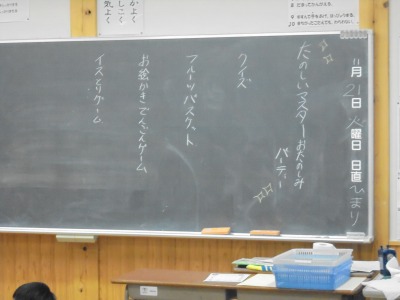 11月21日火曜日 日直 ひまり
たのしいマスターおたのしみ
パーティー
クイズ
フルーツバスケット
お絵かきでんごんゲーム
イスとりゲーム
かよく
しこく
気よく